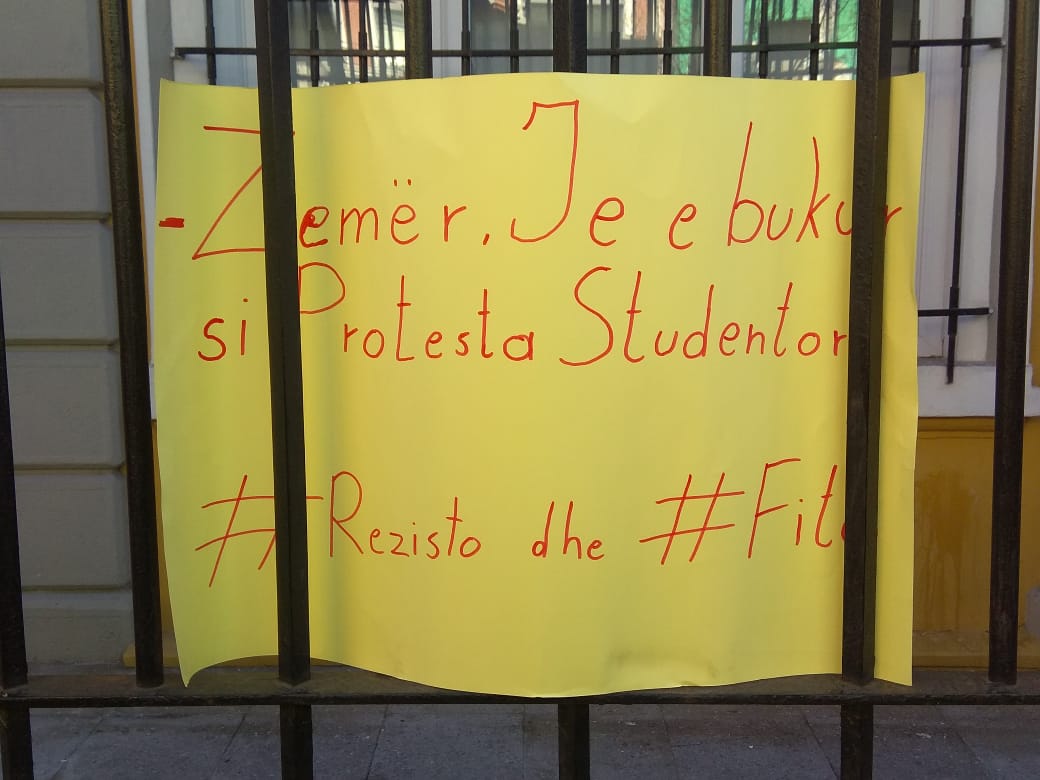 -Zemër, Je e bukur
si Protesta Studentore
#Rezisto dhe #Fito